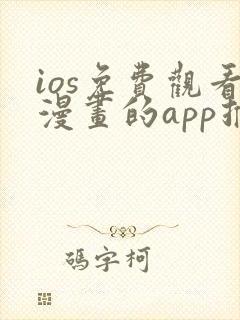 ios免費觀看
漫畫的app推
碼字柯